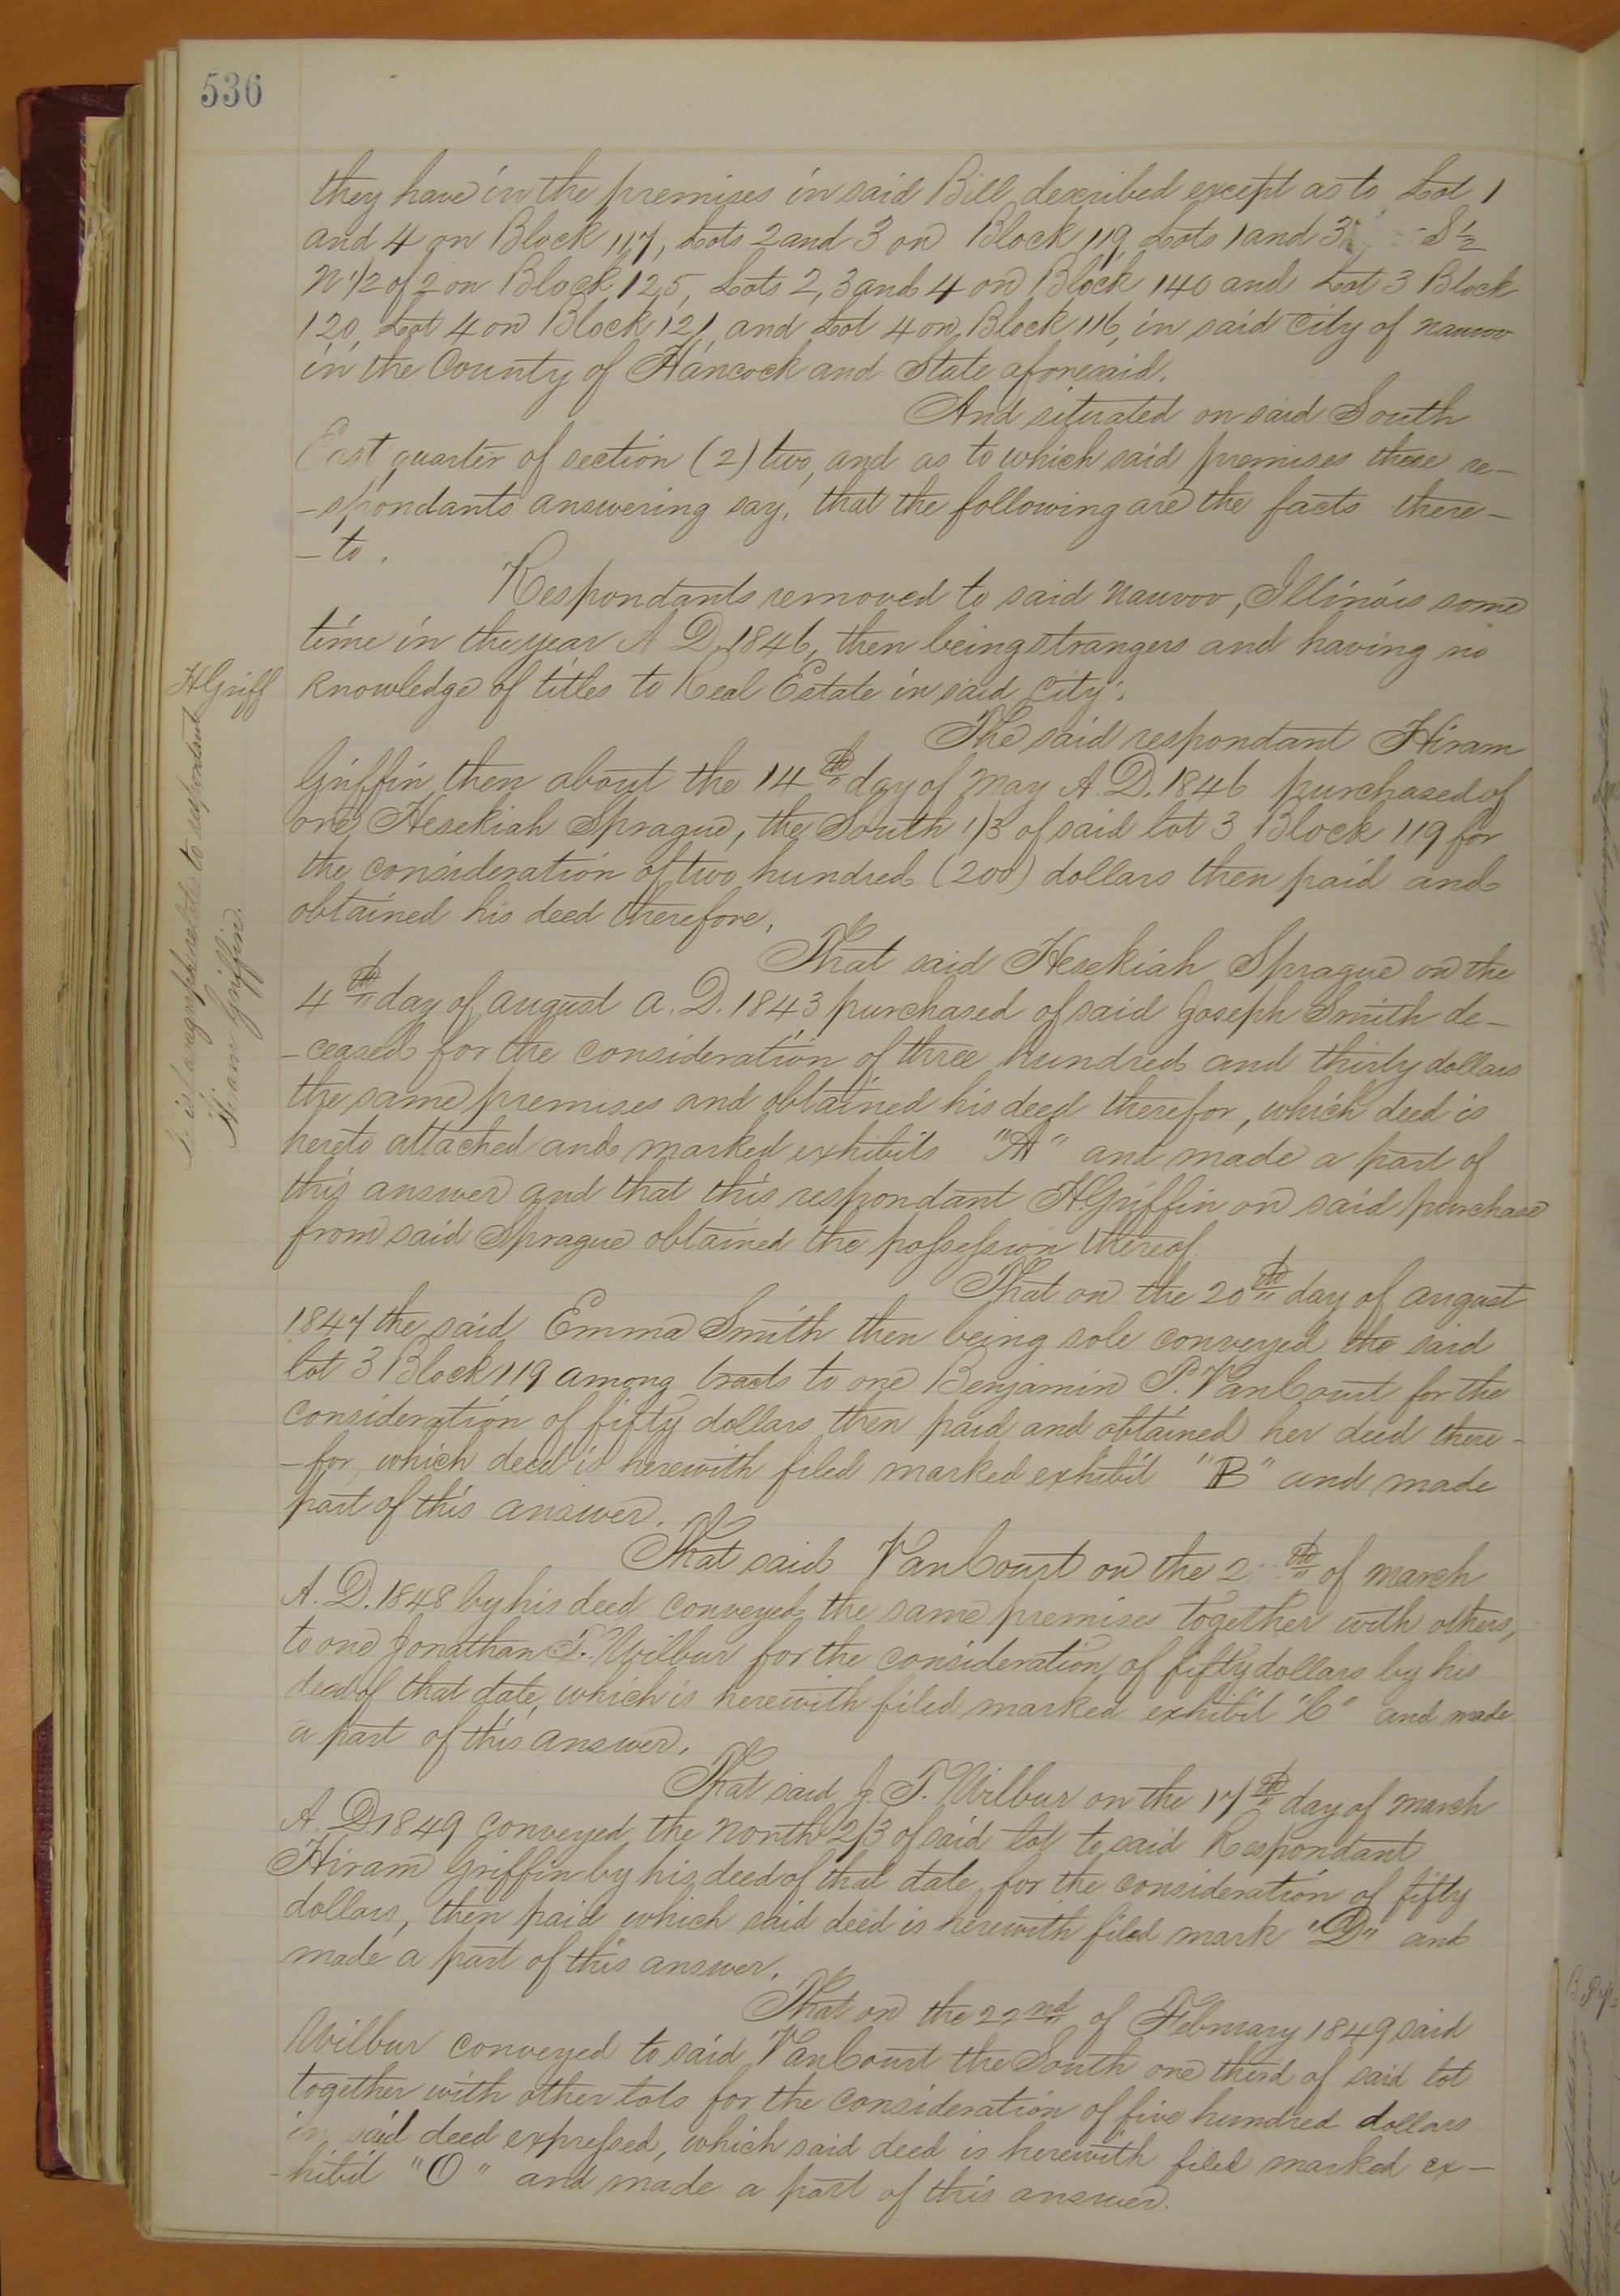 536
they have in the premises in said Bill described except as to Lot 1
and 4 on Block 117, Lots 2 and 3 on Block 119, Lots 1 and 3 S ½
N 1/2 of 2 on Block 125, Lots 2, 3 and 4 on Block 140 and Lot 3 Block
120, Lot 4 on Block 121, and Lot 4 on Block 116, in said City of Nauvoo
in the County of Hancock and State aforesaid.
And situated on said South
East quarter of section (2) two, and as to which said premises these re-
-spondants answering say, that the following are the facts there-
-to.
Respondants removed to said Nauvoo, Illinois some
time in the year A.D. 1846, then being strangers and having no
H Griff
knowledge of titles to Real Estate in said City.
The said respondant Hiram
Griffin then about the 14th day of May A.D. 1846 purchased of
one Hesekiah Sprague, the South 1/3 of said lot 3 Block 119 for
the consideration of two hundred (200) dollars then paid and
obtained his deed therefore.
paragraph relates to respondant
Hiram Griffin.
That said Hesekiah Sprague on the
4th day of August A.D. 1843 purchased of said Joseph Smith de-
-ceased for the consideration of three hundred and thirty dollars
the same premises and obtained his deed therefor, which deed is
hereto attached and marked exhibits "A" and made a part of
this answer and that this respondant H. Griffin on said purchase
from said Sprague obtained the possession thereof.
That on the 20th day of August
1847 the said Emma Smith then being sole conveyed the said
lot 3 Block 119 among tracts to one Benjamin P. VanCourt for the
consideration of fifty dollars then paid and obtained her deed there-
-for, which deed is herewith filed marked exhibit "B" and made
part of this answer.
That said VanCourt on the 2 th of March
A.D. 1848 by his deed conveyed the same premises together with others,
to one Jonathan T. Wilbur for the consideration of fifty dollars by his
deed of that date, which is herewith filed marked exhibit "C" and made
a part of this answer.
That said J. T. Wilbur on the 17th day of March
A.D. 1849 conveyed the North 2/3 of said lot to said Respondant
Hiram Griffin by his deed of that date, for the consideration of fifty
dollars, then paid which said deed is herewith filed mark "D" and
made a part of this answer.
That on the 22nd of February 1849 said
Wilbur conveyed to said VanCourt the South one third of said lot
together with other lots for the consideration of five hundred dollars
in said deed expressed, which said deed is herewith filed marked ex-
-hibit "O" and made a part of this answer.